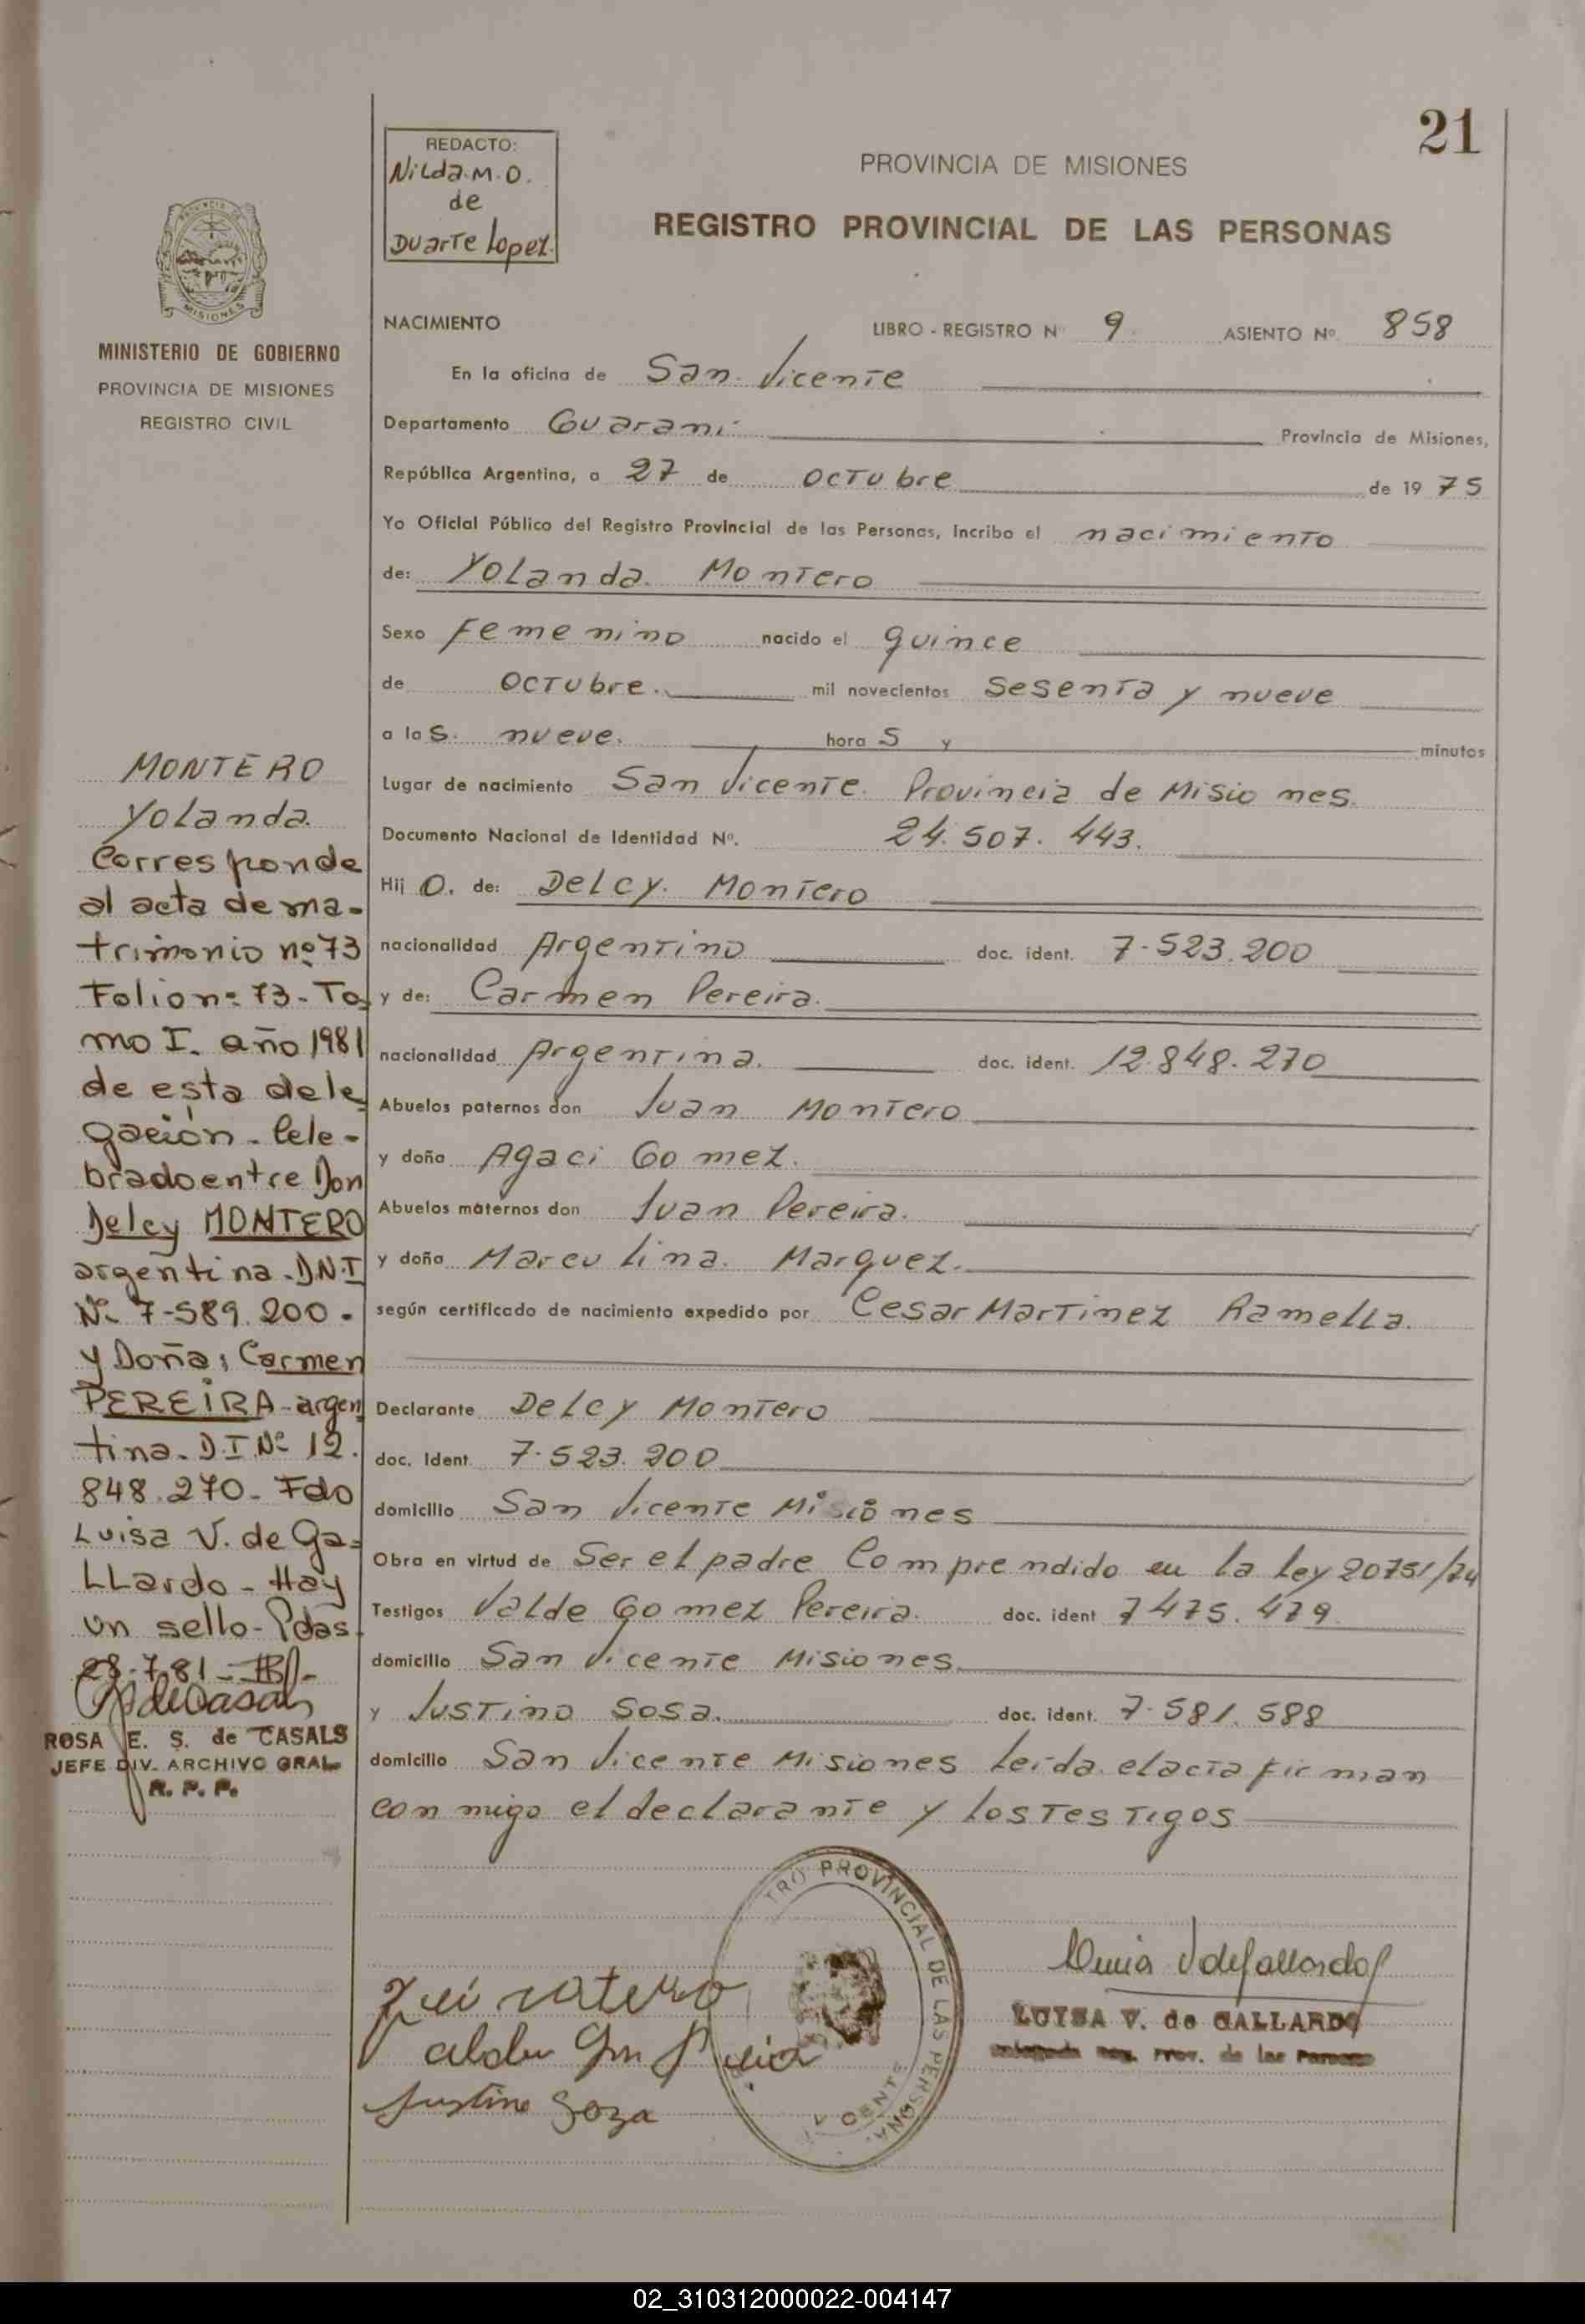 21
REDACTO:
Nilda.M.O.
de
Duarte Lopez.
PROVINCIA DE MISIONES
REGISTRO PROVINCIAL DE LAS PERSONAS
MISIONES
MINISTERIO DE GOBIERNO
PROVINCIA DE MISIONES
REGISTRO CIVIL
NACIMIENTO LIBRO - REGISTRO Nº 9. ASIENTO Nº. 858
En la oficina de San. Vicente
Departamento Guarani Provincia de Misiones,
República Argentina, a 27 de octubre de 19 75
Yo Oficial Público del Registro Provincial de las Personas, incribo el nacimiento
de: Yolanda. Montero
Sexo Femenino nacido el quince
de octubre. mil novecientos sesenta y nueve
a las. nueve. hora s y minutos
Lugar de nacimiento San Vicente. Provincia de Misiones.
Documento Nacional de Identidad Nº. 24.507.443.
Hij o. de: Delcy. Montero
nacionalidad Argentino doc. ident. 7-523.200
y de: Carmen Pereira.
nacionalidad Argentina. doc. ident. 12.848.270
Abuelos paternos don Juan Montero
y doña Agaci Gomez.
Abuelos maternos don Juan Pereira.
y doña Marculina. Marquez.
según certificado de nacimiento expedido por Cesar Martinez Ramella.
Declarante Delcy Montero
doc. Ident. 7.523.200
domicilio San Vicente Misiones
Obra en virtud de Ser el padre Comprendido en la Ley 20751/74
Testigos Valde Gomez Pereira. doc. ident 7475.479
domicilio San Vicente Misiones.
y Justino Sosa. doc. ident. 7.581.588
domicilio San Vicente Misiones Leida el acta firman
conmigo el declarante y los testigos
MONTERO
Yolanda.
Corresponde
al acta de ma-
trimonio nº 73
Folio nº 73-To
mo I. año 1981
de esta dele
gación. Cele-
brado entre Don
Delcy MONTERO
argentina. D.N.I
Nº 7-589.200-
y Doña: Carmen
PEREIRA-argen
tina. D.I Nº 12.
848.270- Fdo
Luisa V. de Ga-
LLardo - Hay
un sello- Pdas.
28-7-81-
ROSA E. S. de CASALS
JEFE DIV. ARCHIVO GRAL
R. P. P.
TRO PROVINCIAL DE LAS PERSONA
V CENTE
Justino Soza
LUISA V. de GALLARDO
02_310312000022-004147